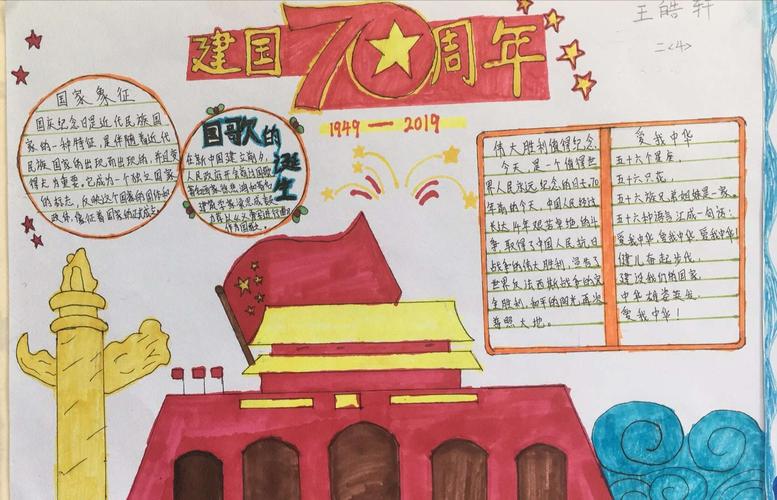 建国70周年
王皓轩
二<4>
1949—2019
国家象征
国庆纪念日是近代民族国
家的一种特征,是伴随着近代
民族国家的出现而出现的,并且变
得尤为重要。它成为一个独立国家
的标志,反映这个国家的国体和
政体,象征着国家的
国歌的诞生
在新中国建立前夕,
人民政府
伟大胜利值得纪念
今天,是一个值得世
界人民永远纪念的日子,70
年前的今天,中国人民经过
长达14年艰苦卓绝的斗
争,取得了中国人民抗日
战争的伟大胜利,宣告了
世界反法西斯战争的完
全胜利,和平的阳光再次
普照大地。
爱我中华
五十六个星座,
五十六只花,
五十六族兄弟姐妹是一家,
五十六种语言汇成一句话:
爱我中华 爱我中华 爱我中华!
健儿奋起步伐,
建设我们的国家,
中华雄姿英发,
爱我中华!